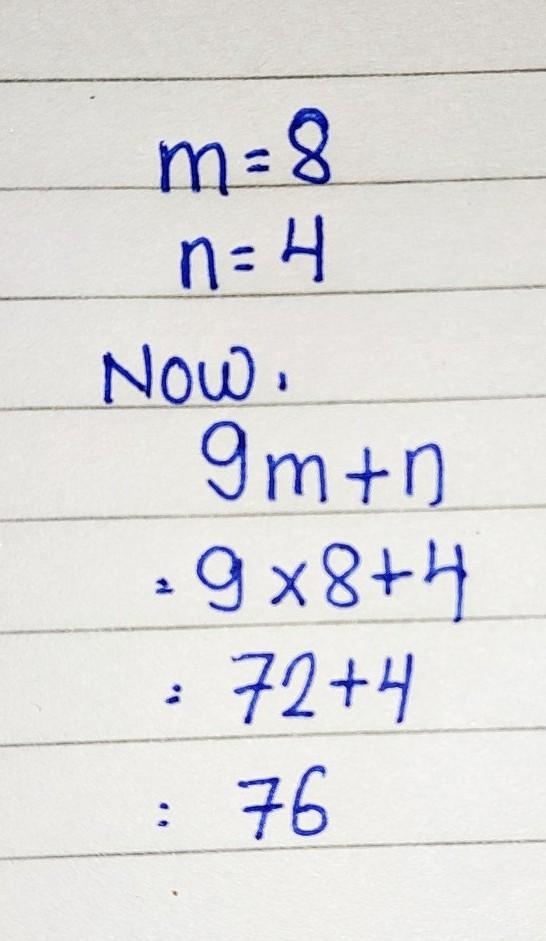 m = 8
n = 4
Now,
9m + n
= 9 × 8 + 4
= 72 + 4
= 76